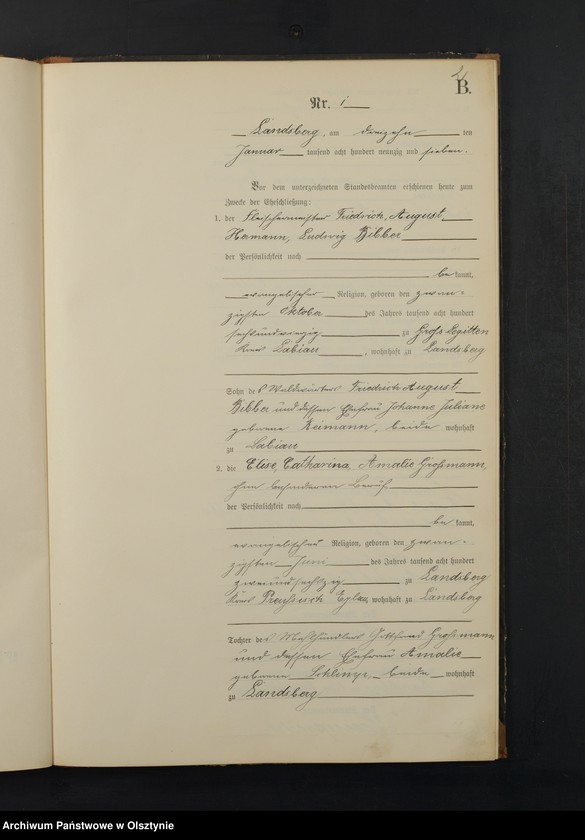 B.
Nr. 1
Landsberg, am dreizehn ten
Januar tausend acht hundert neunzig und sieben.
Vor dem unterzeichneten Standesbeamten erschienen heute zum
Zwecke der Eheschließung:
1. der Fleischermeister Friedrich, August,
Hermann, Ludwig Bibber
der Persönlichkeit nach
be kannt,
evangelischer Religion, geboren den zwan-
zigsten Oktober des Jahres tausend acht hundert
sechsundvierzig zu Groß Legitten
Kreis Labiau, wohnhaft zu Landsberg
Sohn des Waldwärters Friedrich August
Bibber und dessen Ehefrau Johanne Juliane
geborene Reimann, beide wohnhaft
zu Labiau
2. die Elise, Catharina, Amalie Großmann,
ohne besonderen Beruf
der Persönlichkeit nach
be kannt,
evangelischer Religion, geboren den zwan-
zigsten Juni des Jahres tausend acht hundert
zweiundsechzig zu Landsberg
Kreis Preußisch Eylau, wohnhaft zu Landsberg
Tochter des Mehlhändlers Gottfried Großmann
und dessen Ehefrau Amalie
geborene beide wohnhaft
zu Landsberg
Archiwum Państwowe w Olsztynie